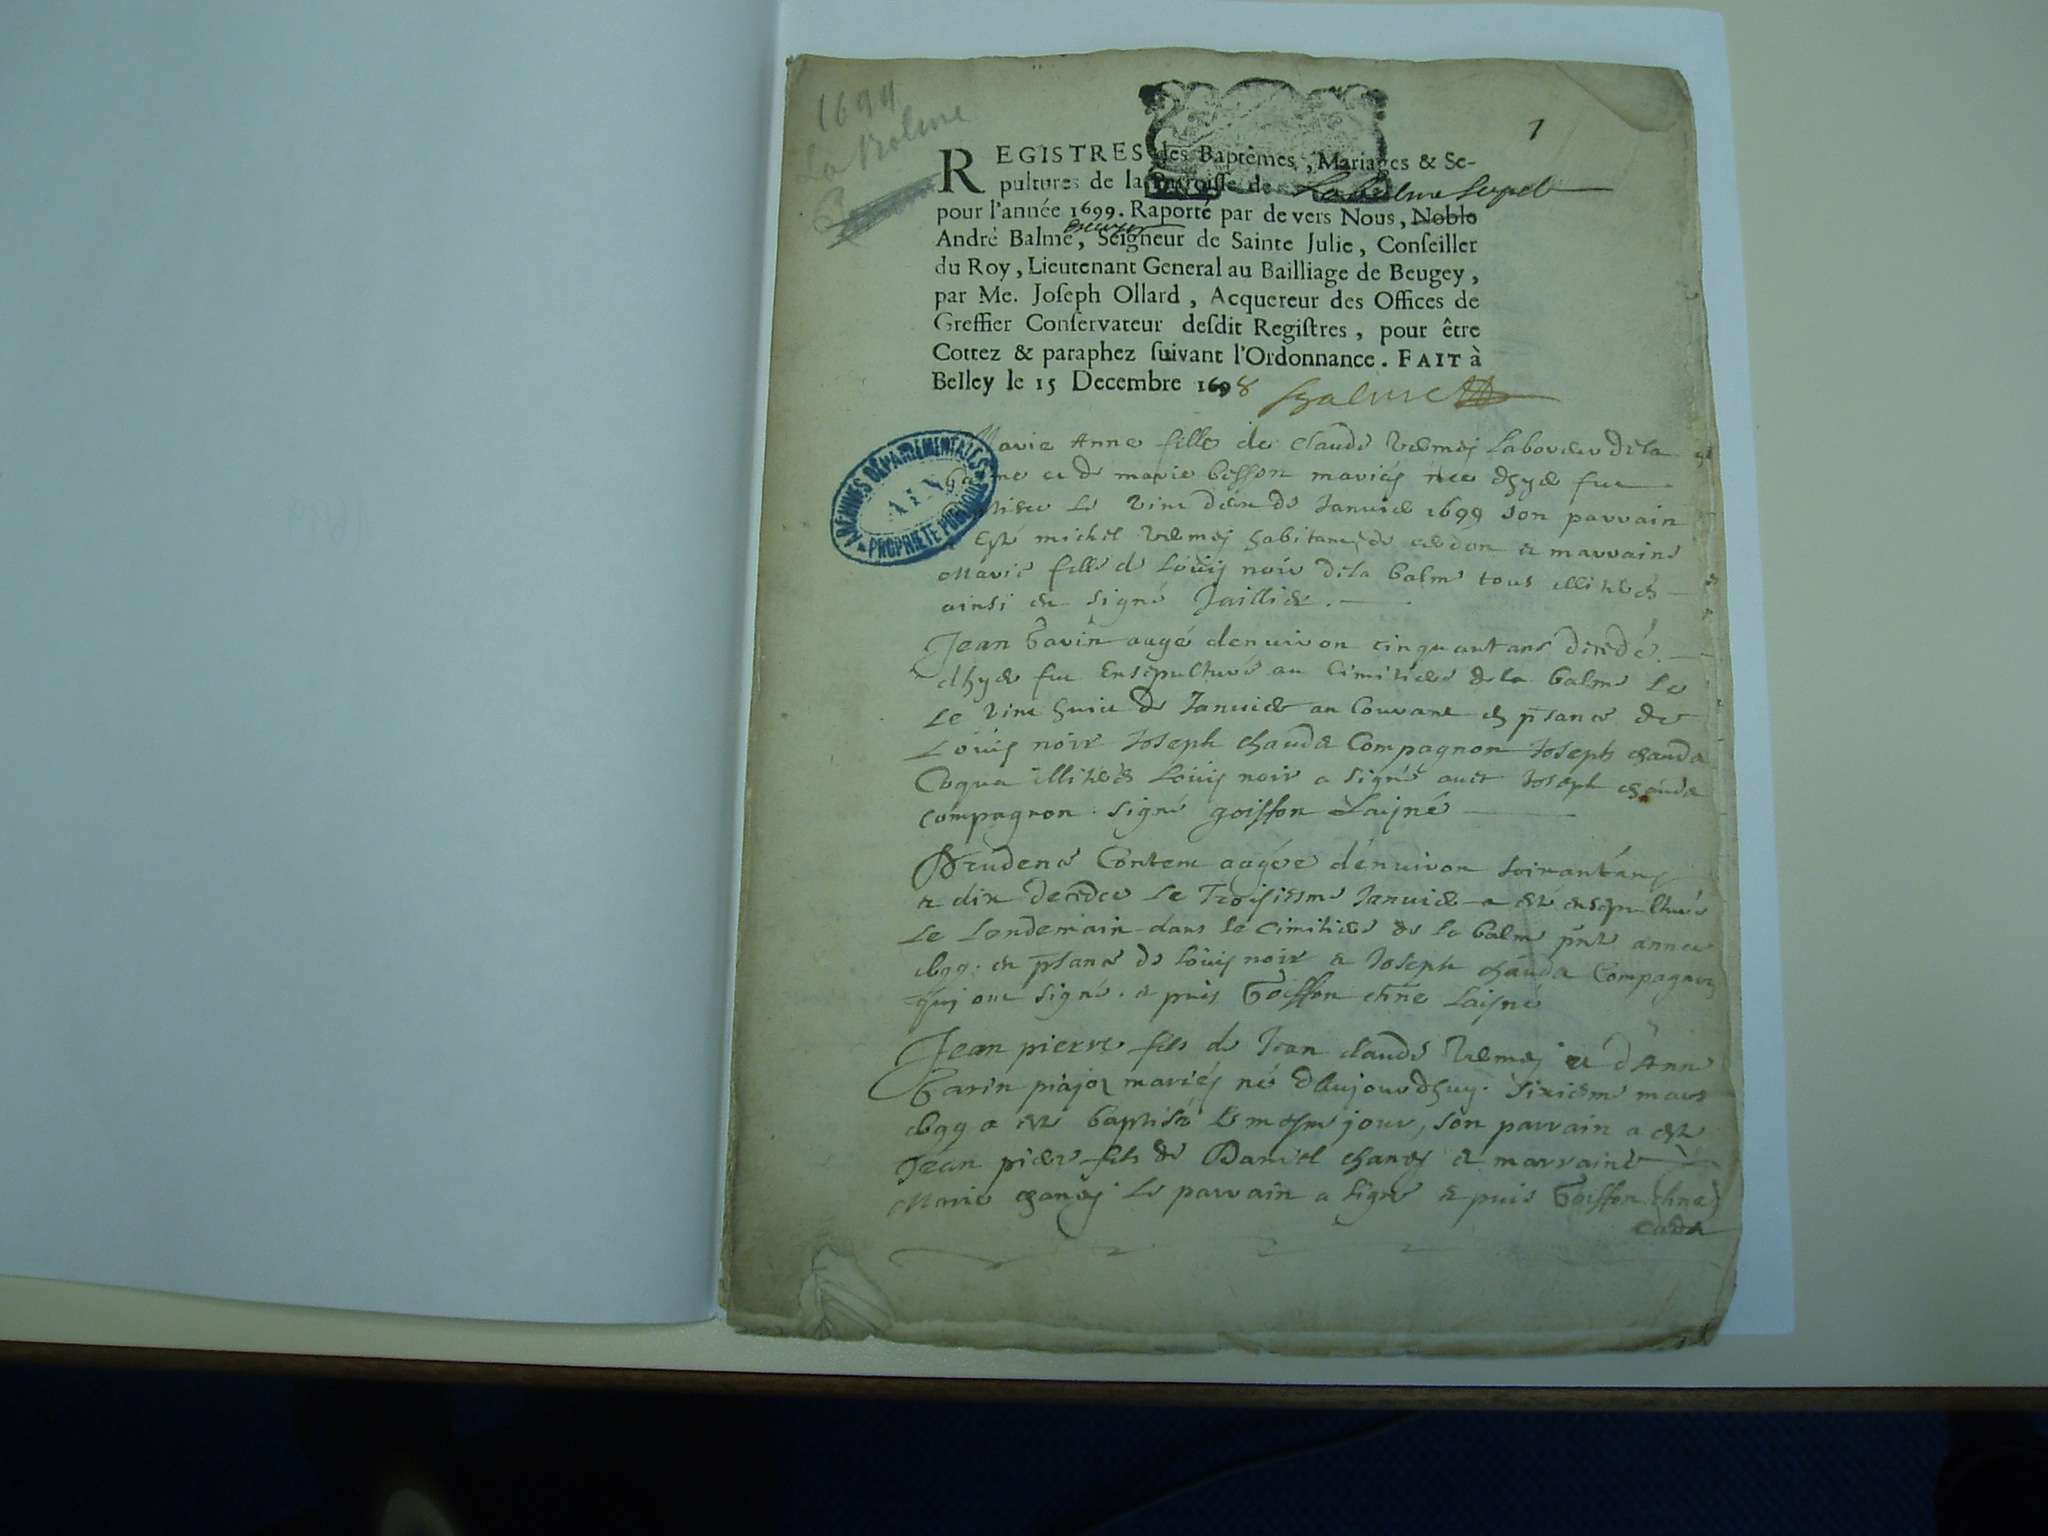 1699
La Balme
1
REGISTRES des Baptêmes, Mariages & Se-
pultures de la Parroisse de La Balme Sapel
pour l'année 1699. Raporté par de vers Nous, Noble
André Balme, Seigneur de Sainte Julie, Conseiller
du Roy, Lieutenant General au Bailliage de Beugey,
par Me. Joseph Ollard, Acquereur des Offices de
Greffier Conservateur desdit Registres, pour être
Cottez & paraphez suivant l'Ordonnance. FAIT à
Belley le 15 Decembre 1698 Balme
ARCHIVES DÉPARTEMENTALES
AIN
PROPRIÉTÉ PUBLIQUE
Marie Anne fille de Claude laboureur de la
et de marie besson mariés née fut
le vint de Janvier 1699 son parrain
Est michel habitant de cerdon et marraine
Marie fille de Louis noir de la balme tous illiterés
ainsi est signé Jaillier.
Jean Gavin augé denviron cinquant ans decedé
dhyer fut Ensepulturé au Cimitiere de la balme Le
Le vint huict de Janvier an Courant en psance de
Louis noir Joseph chauda Compagnon Joseph chauda
illiterés Louis noir a signé avec Joseph chauda
compagnon. signé goiffon Laisné
Prudence Content augée denviron soixantan
et dix decedée Le Troisiesme Janvier a esté ensepulturé
Le Londemain dans le cimitiere de la balme pnte année
1699. en psance de Louis noir et Joseph chauda Compagnon
qui ont signé. et puis Goiffon Laisné
Jean pierre fils de Jean Claude et d'Ann
Gavin mariés né D'Aujourdhuy. sixiesme mars
1699 a esté baptisé le mesme jour, son parrain a esté
Jean pierre fils de Daniel chaney et marraine
Marie chaney le parrain a signé et puis Goiffon